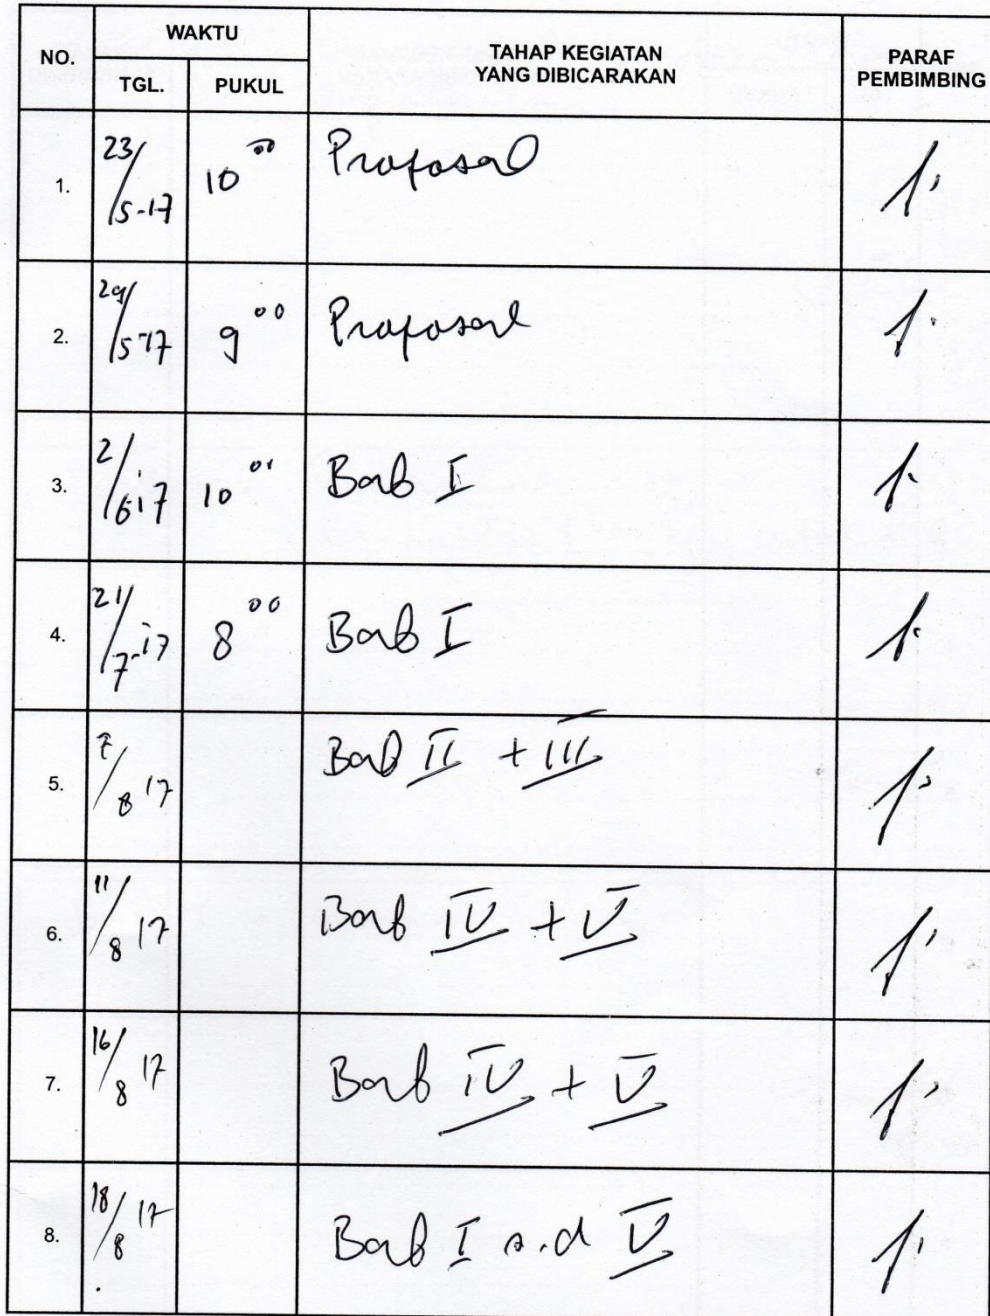 NO. WAKTU TAHAP KEGIATAN YANG DIBICARAKAN PARAF PEMBIMBING
TGL. PUKUL
1. 23/5-17 10 00 Proposal
2. 29/5-17 9 00 Proposal
3. 2/6-17 10 00 Bab I
4. 21/7-17 8 00 Bab I
5. 7/8 17 Bab II + III
6. 11/8 17 Bab IV + V
7. 16/8 17 Bab IV + V
8. 18/8 17 Bab I s.d V